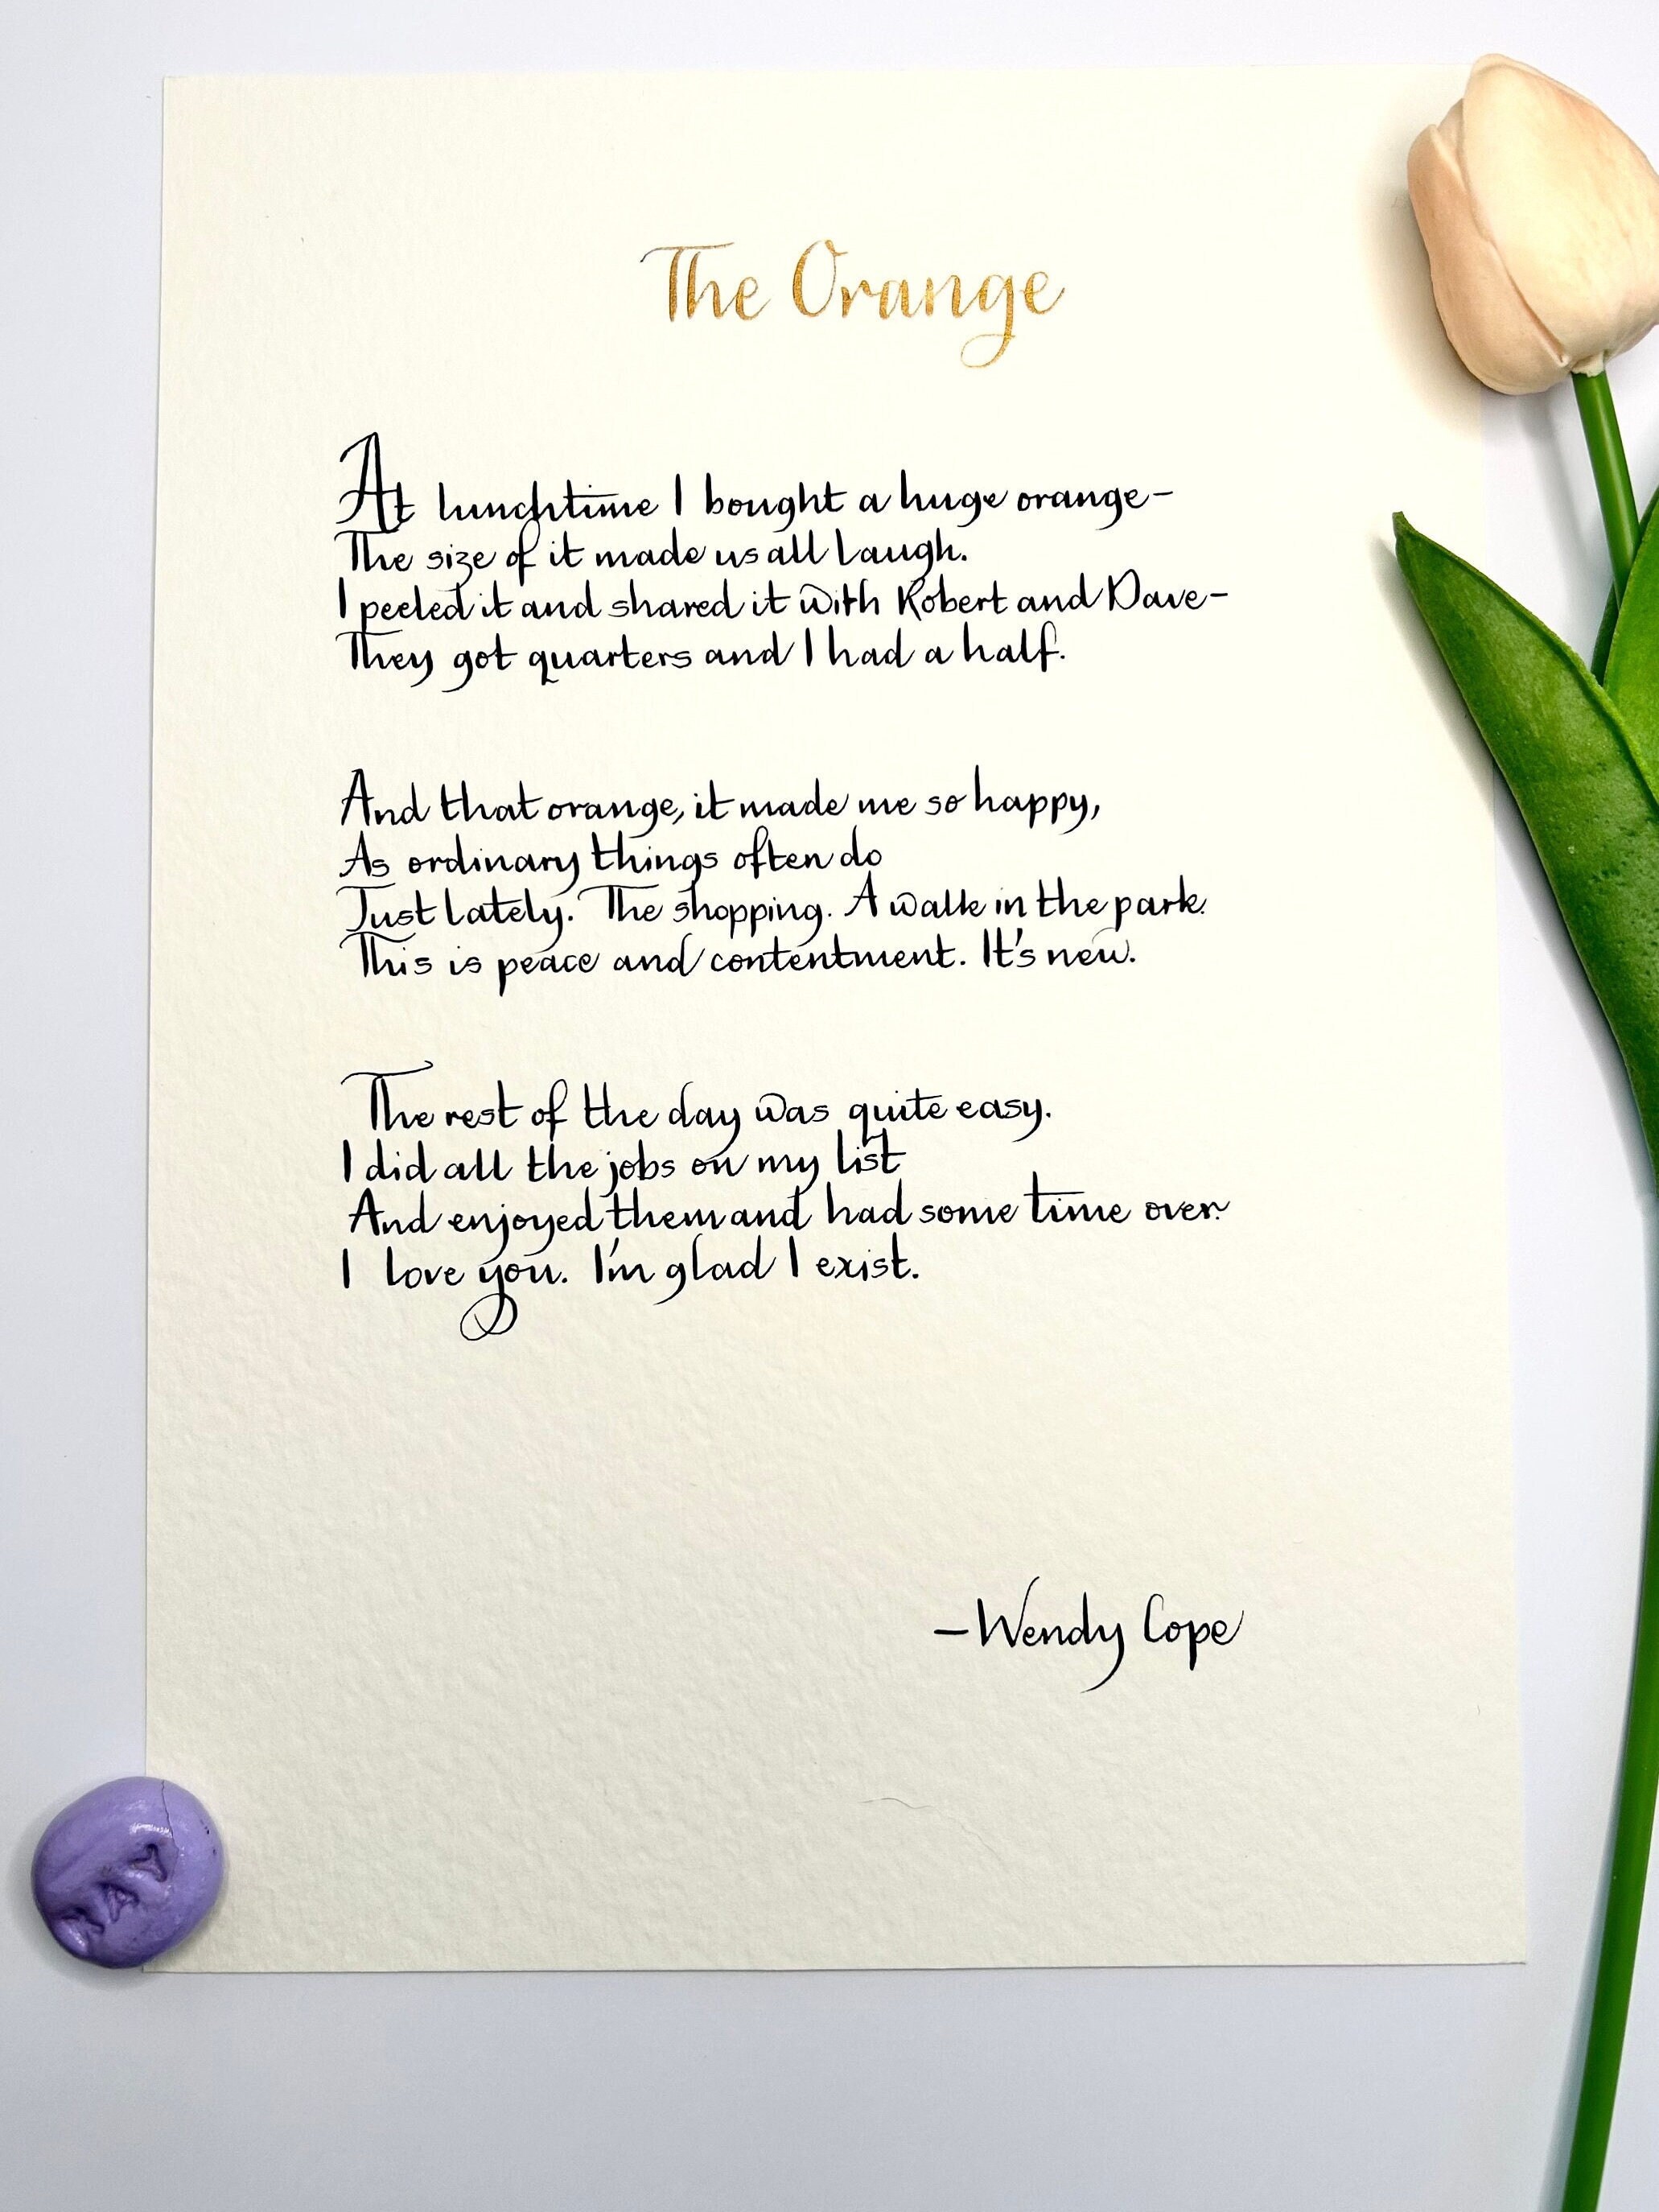 The Orange
At lunchtime I bought a huge orange–
The size of it made us all laugh.
I peeled it and shared it with Robert and Dave–
They got quarters and I had a half.
And that orange, it made me so happy,
As ordinary things often do
Just lately. The shopping. A walk in the park.
This is peace and contentment. It's new.
The rest of the day was quite easy.
I did all the jobs on my list
And enjoyed them and had some time over.
I love you. I'm glad I exist.
–Wendy Cope